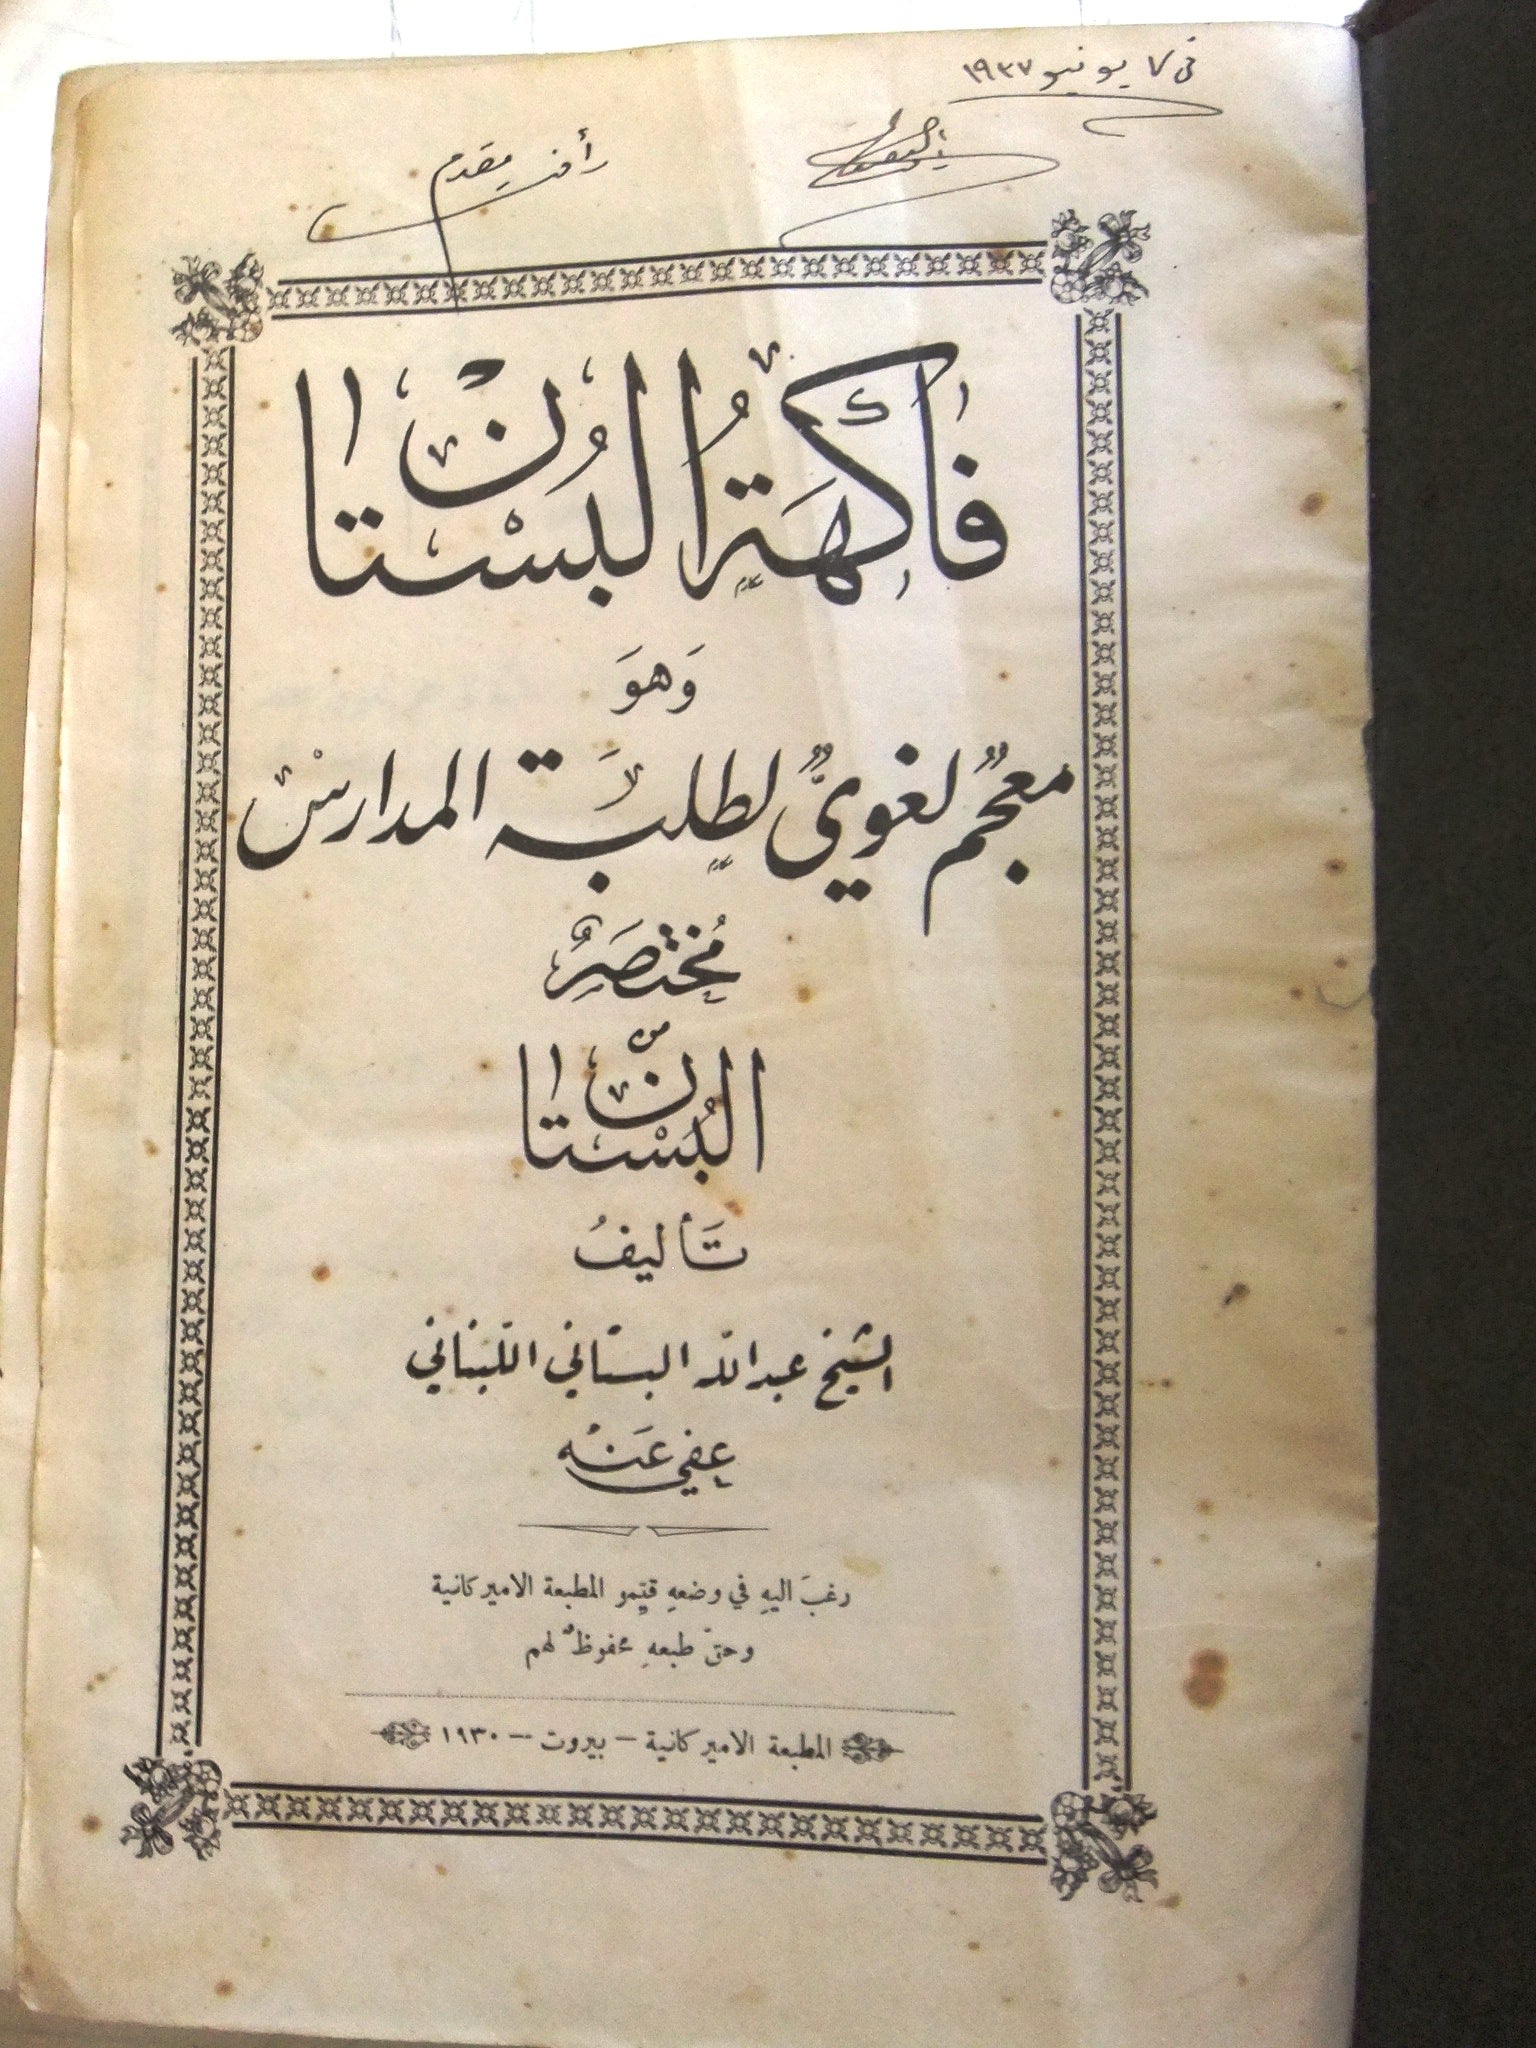 في ٧ يونيو ١٩٣٧
رأفت مقدم
فَاكِهَةُ البُسْتَانِ
وَهوَ
معجمٌ لغويٌّ لطلبَةِ المدارسْ
مُختصَرٌ
من
البُسْتَانِ
تَأليفُ
الشيخ عبد الله البستاني اللبناني
عفي عَنْه
رغبَ اليهِ في وضعهِ قيّمو المطبعة الاميركانية
وحقّ طبعهِ محفوظٌ لهم
المطبعة الاميركانية – بيروت – ١٩٣٠